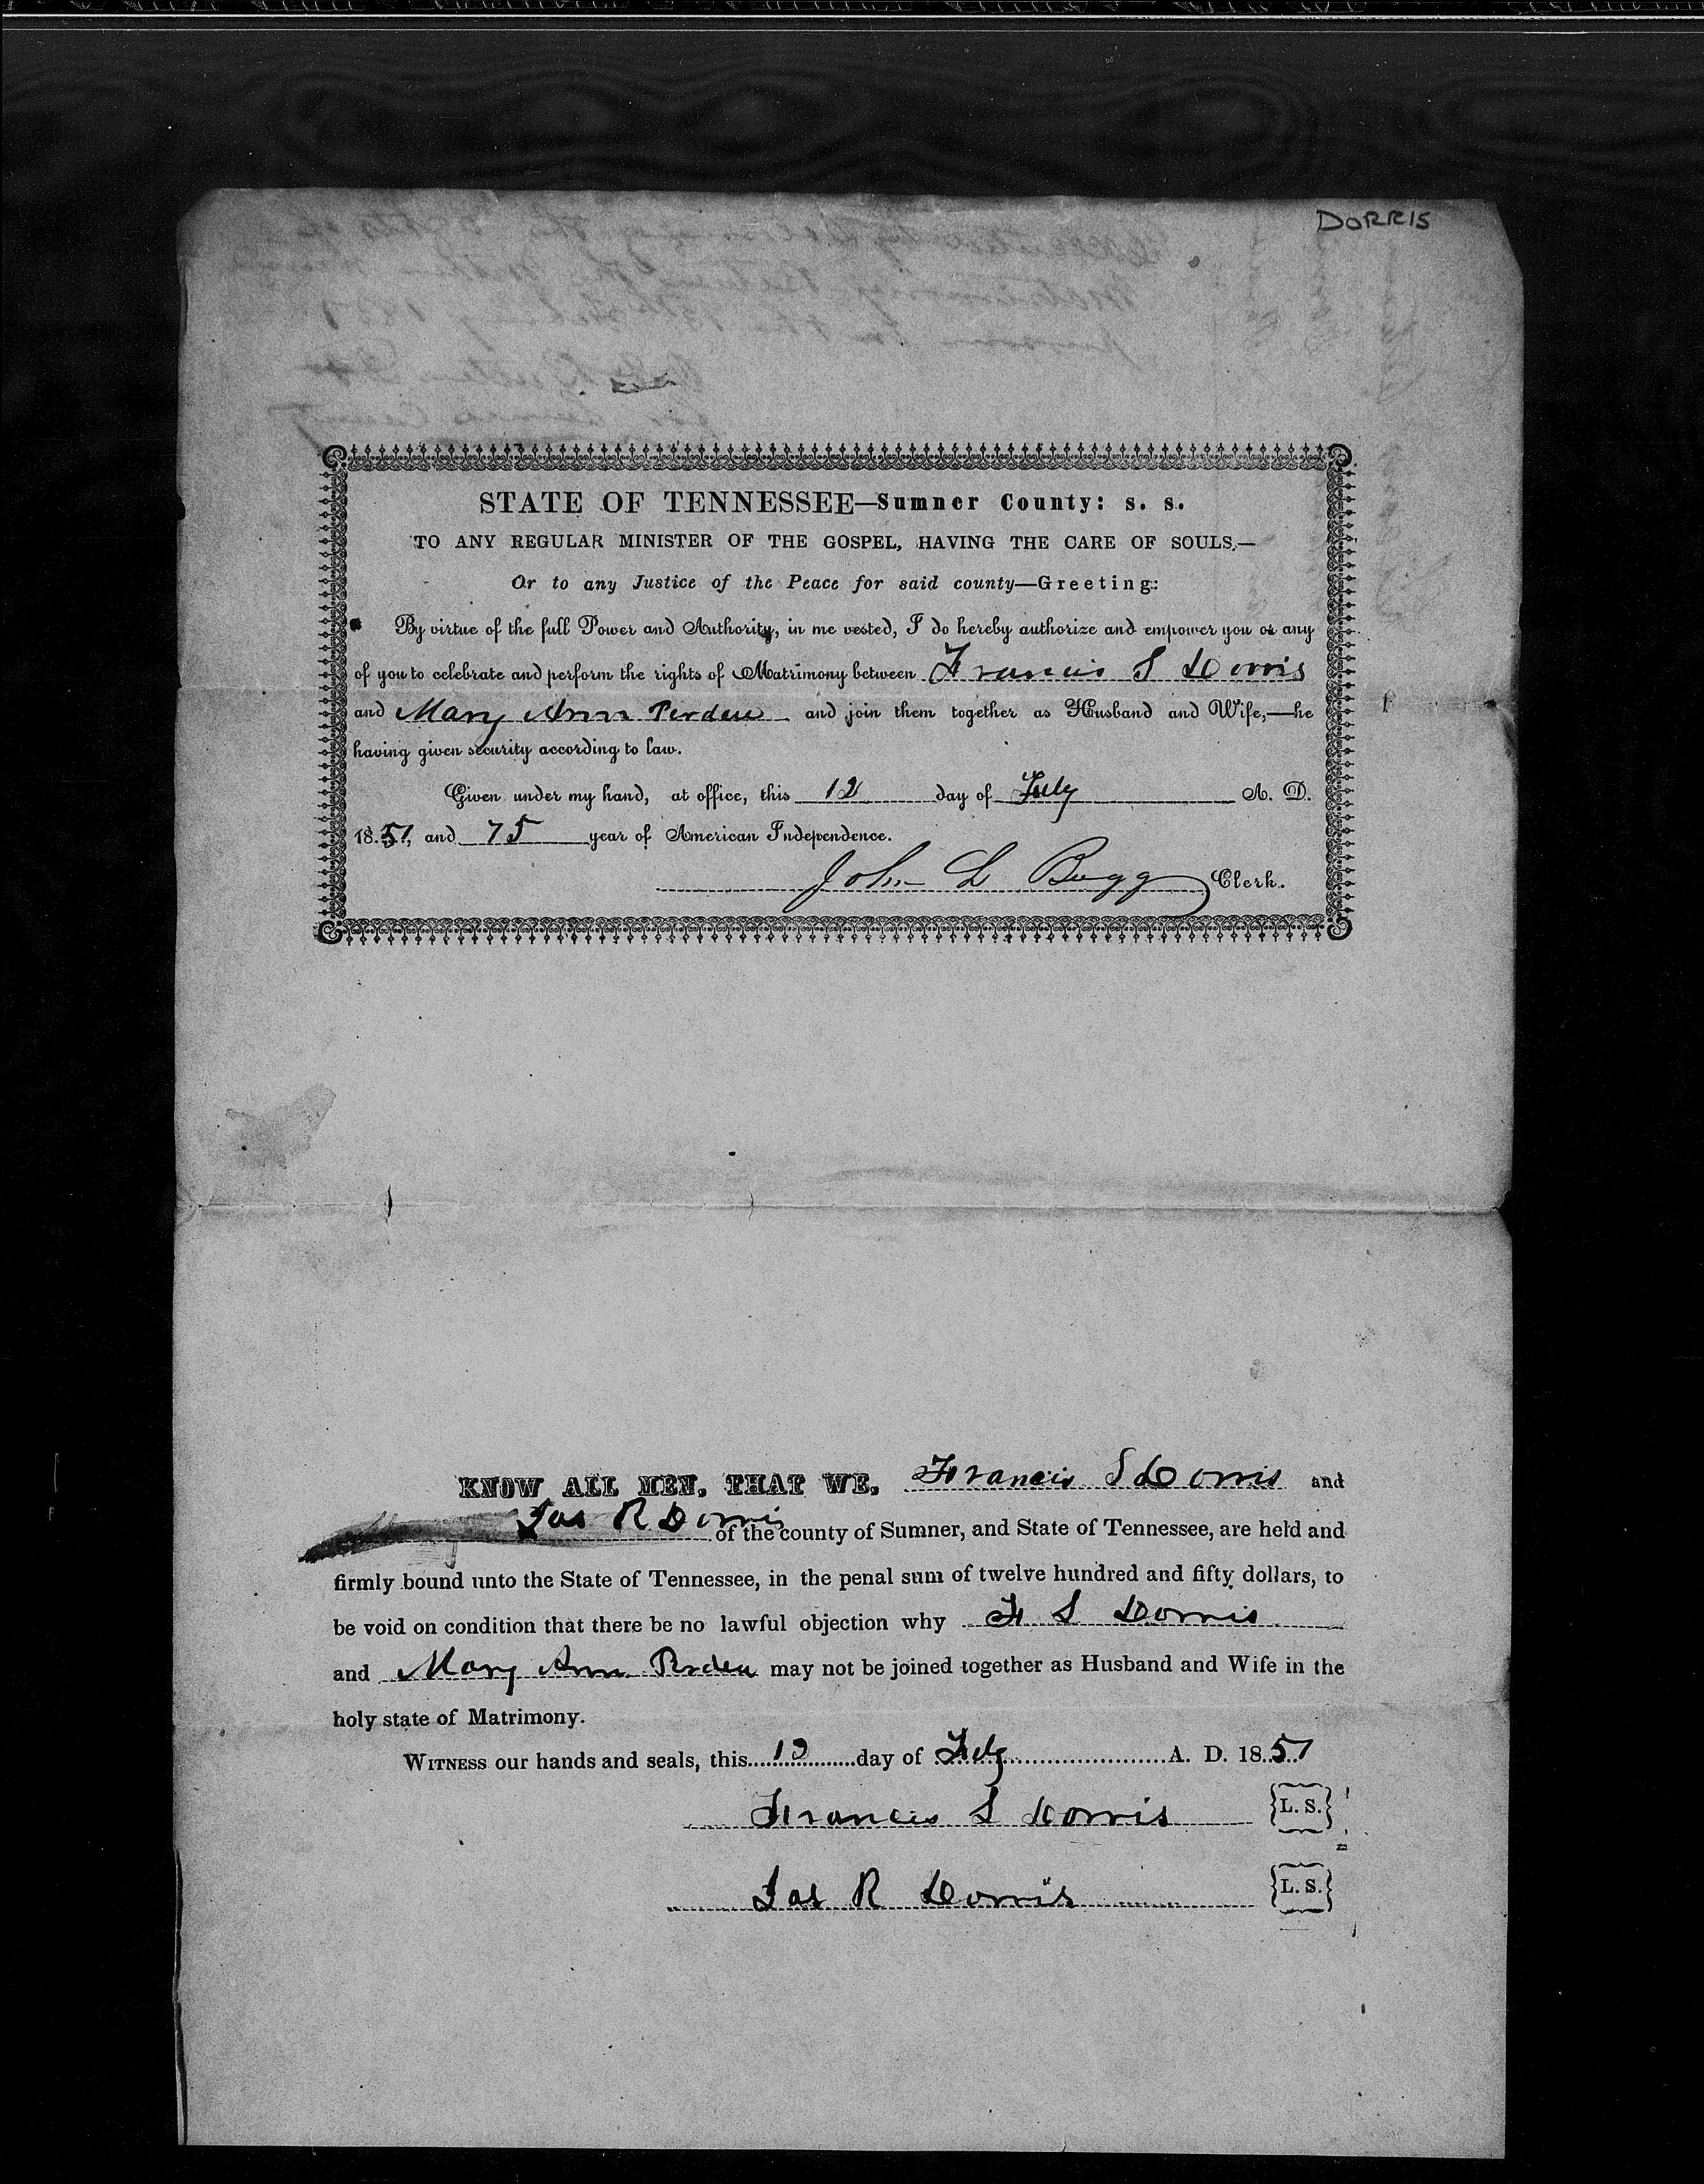 DORRIS
STATE OF TENNESSEE—Sumner County: s. s.
TO ANY REGULAR MINISTER OF THE GOSPEL, HAVING THE CARE OF SOULS,—
Or to any Justice of the Peace for said county—Greeting:
By virtue of the full Power and Authority, in me vested, I do hereby authorize and empower you or any
of you to celebrate and perform the rights of Matrimony between Francis S Dorris
and Mary Ann Perdue and join them together as Husband and Wife,—he
having given security according to law.
Given under my hand, at office, this 12 day of July A. D.
1851, and 75 year of American Independence.
John L Bugg Clerk.
KNOW ALL MEN, THAT WE, Francis S Dorris and
Jas R Dorris of the county of Sumner, and State of Tennessee, are held and
firmly bound unto the State of Tennessee, in the penal sum of twelve hundred and fifty dollars, to
be void on condition that there be no lawful objection why F S Dorris
and Mary Ann Perdue may not be joined together as Husband and Wife in the
holy state of Matrimony.
WITNESS our hands and seals, this 12 day of July A. D. 1851
Francis S Dorris {L. S.}
Jas R Dorris {L. S.}